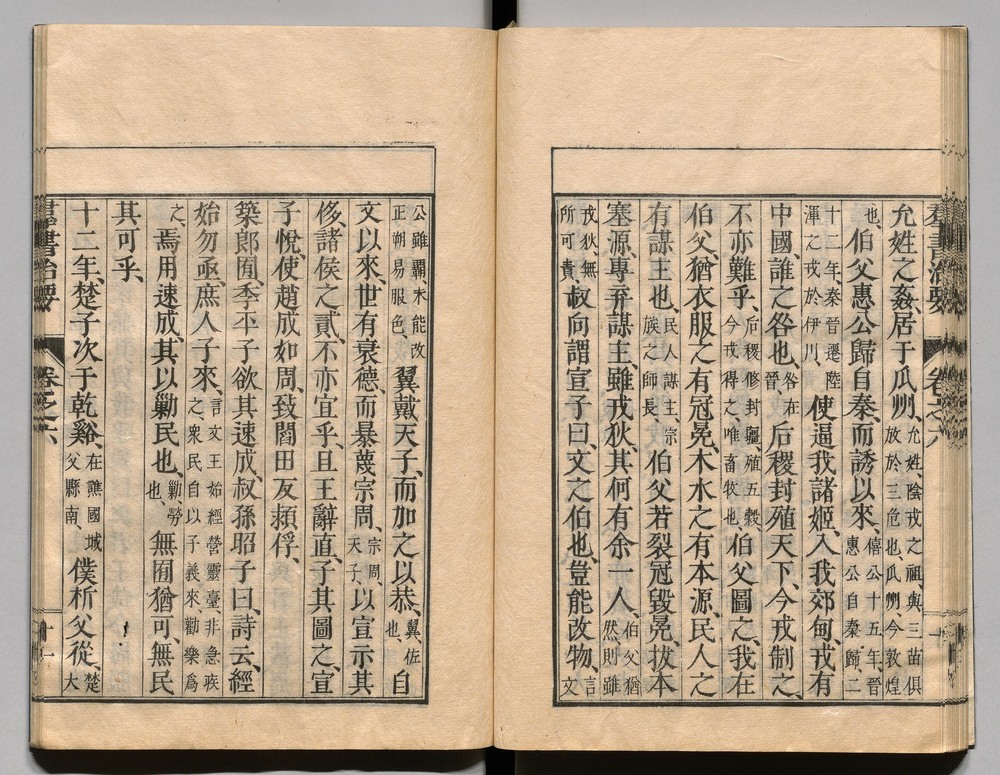 羣書治要 卷之六 十
允姓之姦、居于瓜州、允姓、陰戎之祖、與三苗俱放於三危也、瓜州、今敦煌
也、伯父惠公歸自秦、而誘以來、僖公十五年、晉惠公自秦歸、二
十二年、秦晉遷陸渾之戎於伊川、使逼我諸姬、入我郊甸、戎有
中國、誰之咎也、咎在晉、后稷封殖天下、今戎制之、
不亦難乎、后稷修封疆、殖五穀、今戎得之、唯畜牧也、伯父圖之、我在
伯父、猶衣服之有冠冕、木水之有本源、民人之
有謀主也、民人謀主、宗族之師長、伯父若裂冠毀冕、拔本
塞源、專弃謀主、雖戎狄、其何有余一人、伯父猶然、則雖
戎狄、無所可責、叔向謂宣子曰、文之伯也、豈能改物、言文
公雖霸、未能改正朔易服色、翼戴天子、而加之以恭、翼、佐也、自
文以來、世有衰德、而暴蔑宗周、宗周、天子、以宣示其
侈、諸侯之貳、不亦宜乎、且王辭直、子其圖之、宣
子悅、使趙成如周、致閻田、反潁俘、
築郎囿、季平子欲其速成、叔孫昭子曰、詩云、經
始勿亟、庶人子來、言文王始經營靈臺、非急疾之、衆民自以子義來、勸樂爲
之、焉用速成、其以勦民也、勦、勞也、無囿猶可、無民
其可乎、
十二年、楚子次于乾谿、在譙國城父縣南、僕析父從、楚大
羣書治要 卷之六 十一